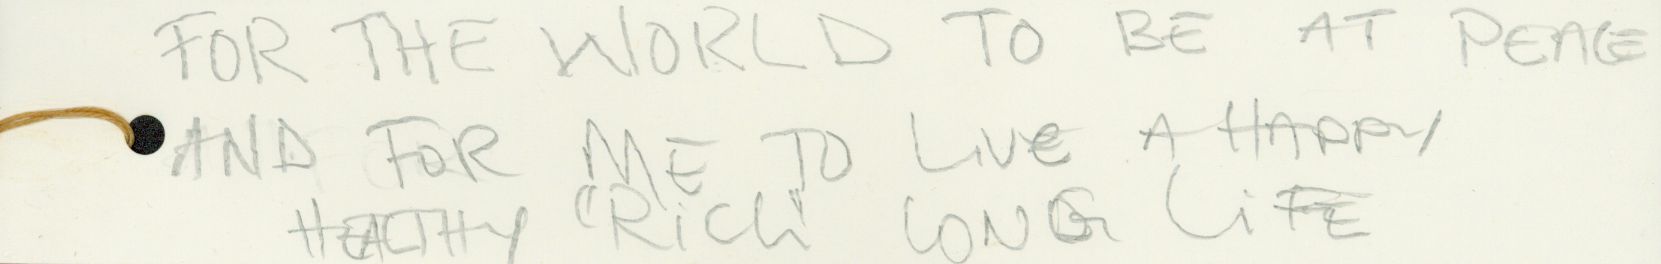 FOR THE WORLD TO BE AT PEACE
AND FOR ME TO LIVE A HAPPY
HEALTHY "RICH" LONG LIFE